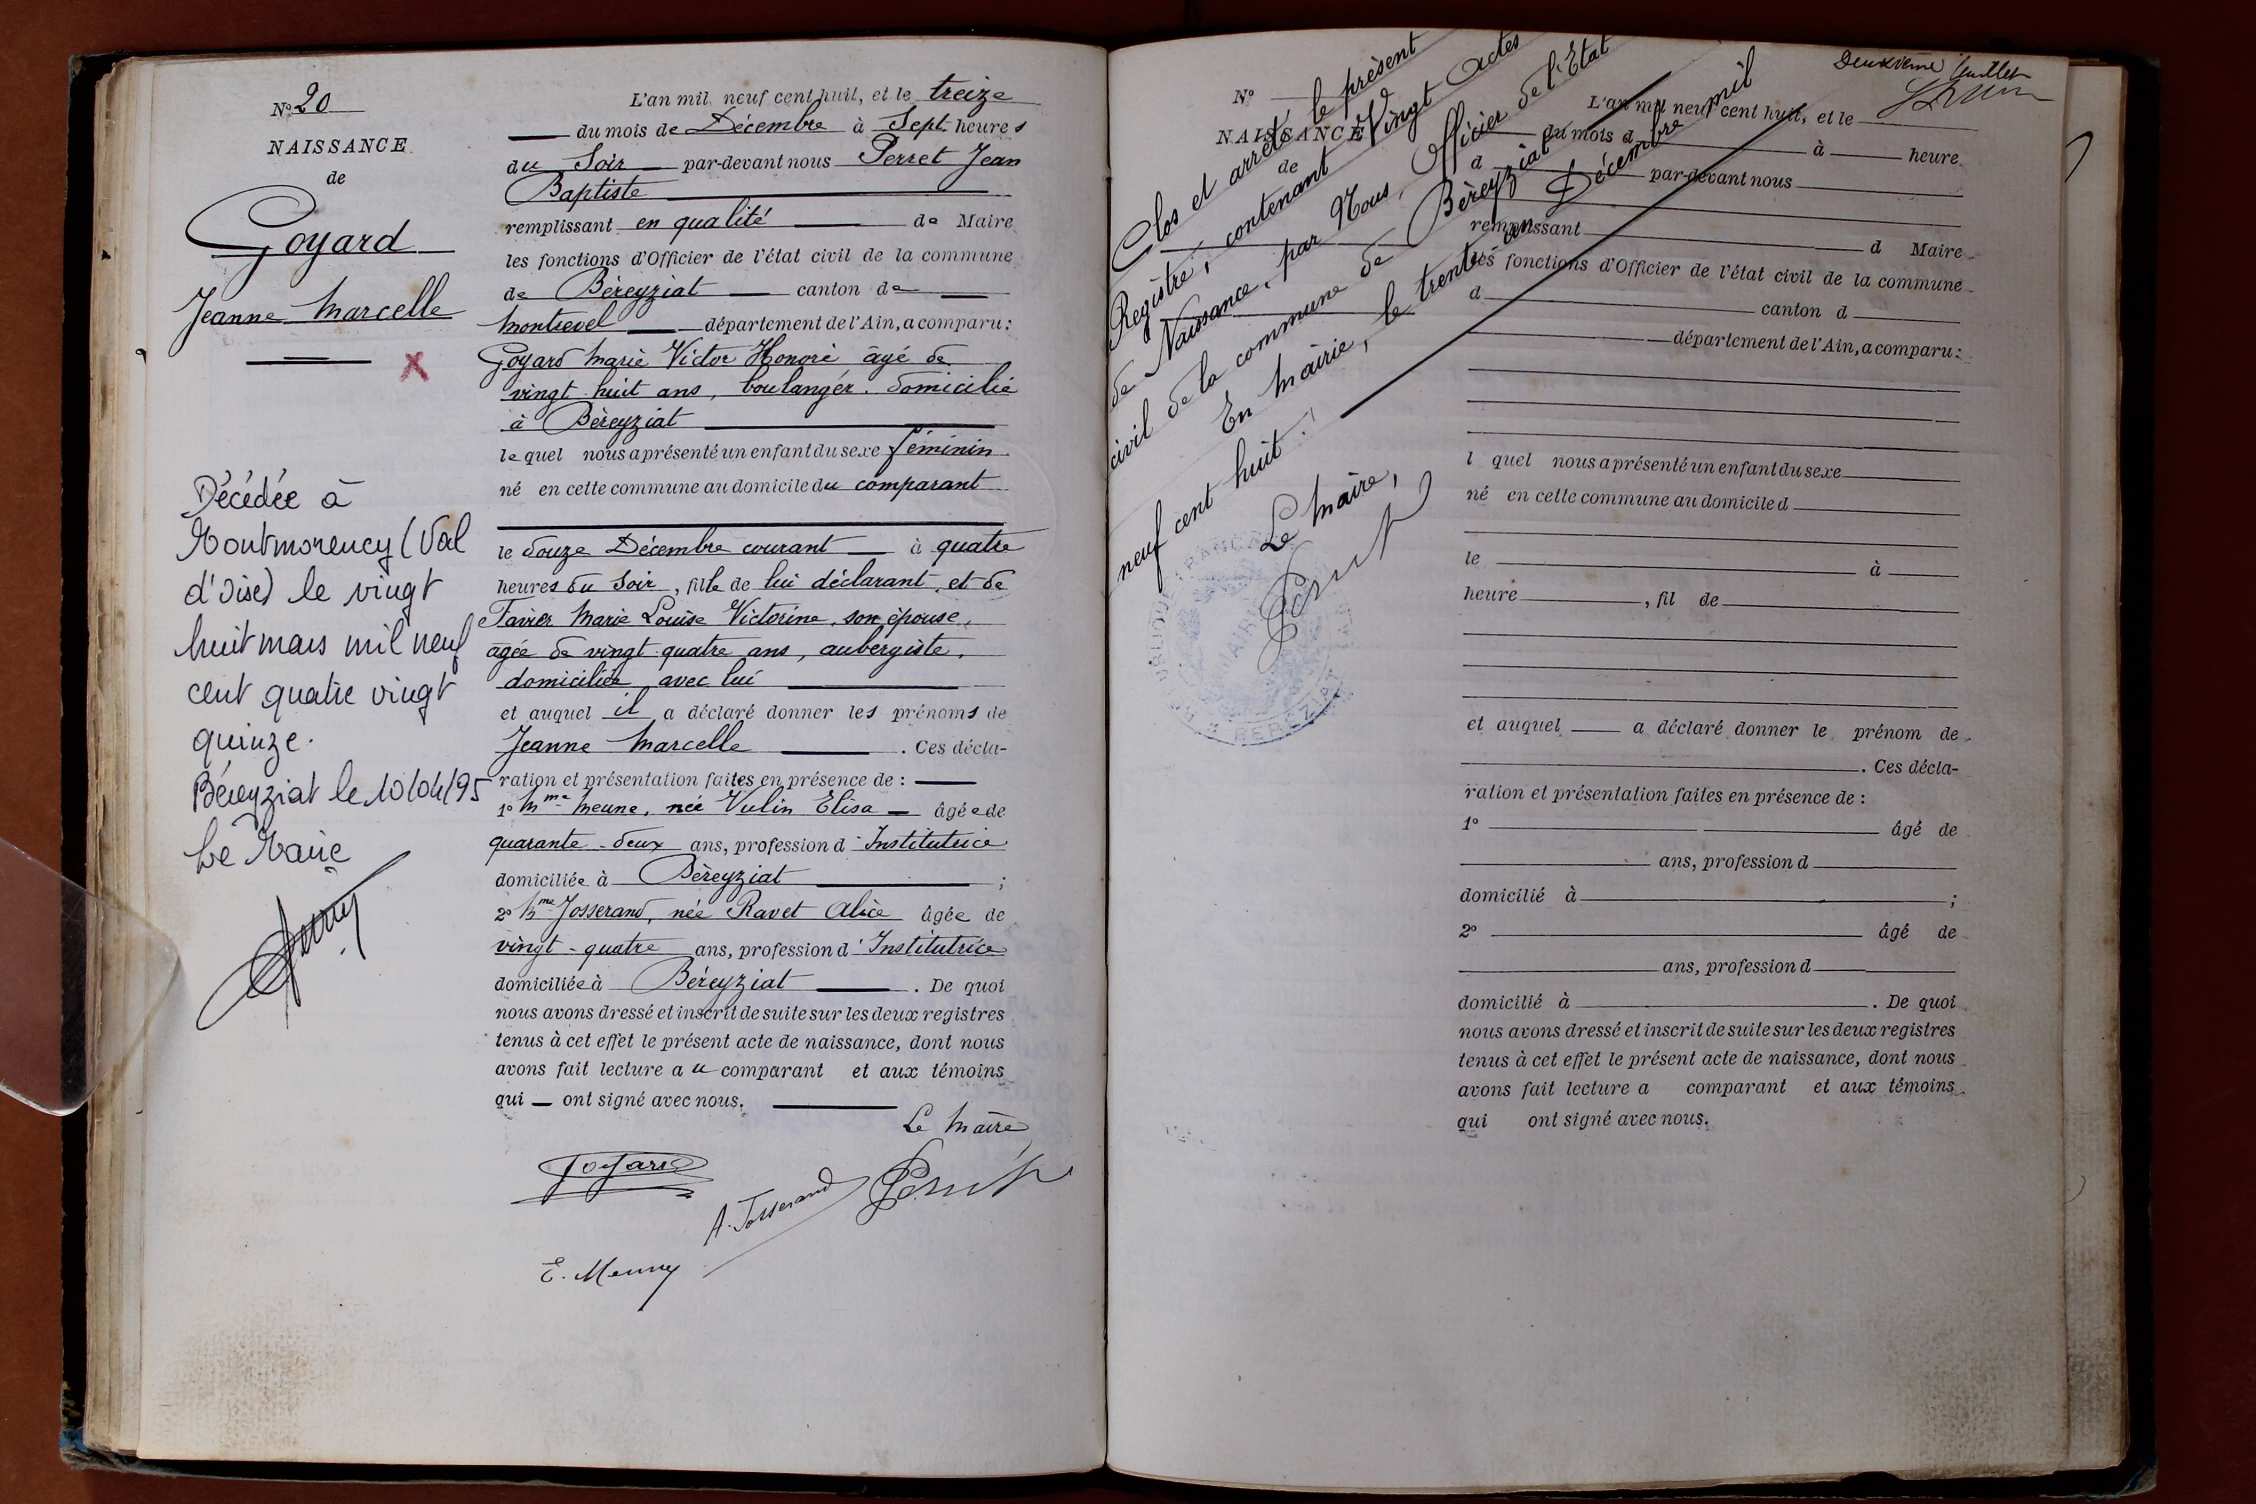 N° 20
NAISSANCE
de
Goyard
Jeanne Marcelle
Décédée à
Montmorency (Val
d'Oise) le vingt
huit mars mil neuf
cent quatre vingt
quinze.
Béreyziat le 10/04/95
Le Maire
L'an mil neuf cent huit, et le treize
du mois de Décembre à Sept heures
du Soir par-devant nous Perret Jean
Baptiste
remplissant en qualité de Maire
les fonctions d'Officier de l'état civil de la commune
de Béreyziat canton de
Montrevel département de l'Ain, a comparu:
Goyard Marie Victor Honoré âgé de
vingt huit ans, boulanger. domicilié
à Béreyziat
lequel nous a présenté un enfant du sexe féminin
né en cette commune au domicile du comparant
le douze Décembre courant à quatre
heures du Soir, fille de lui déclarant, et de
Favier Marie Louise Victorine, son épouse,
agée de vingt quatre ans, aubergiste,
domiciliée avec lui
et auquel il a déclaré donner les prénoms de
Jeanne Marcelle . Ces décla-
ration et présentation faites en présence de :
1° Mme Meune, née Vulin Elisa âgée de
quarante-deux ans, profession d'Institutrice
domiciliée à Béreyziat ;
2° Mme Josserand, née Ravet Alice âgée de
vingt-quatre ans, profession d'Institutrice
domiciliée à Béreyziat . De quoi
nous avons dressé et inscrit de suite sur les deux registres
tenus à cet effet le présent acte de naissance, dont nous
avons fait lecture au comparant et aux témoins
qui — ont signé avec nous.
Le Maire
Goyard
A. Josserand
Perret
E. Meune
Deuxième feuillet
Clos et arrêté le présent
Registre, contenant Vingt Actes
de Naissance, par Nous, Officier de l'Etat
civil de la commune de Béreyziat
En Mairie, le trente-un Décembre mil
neuf cent huit.
Le Maire,
Perret
RÉPUBLIQUE FRANÇAISE
MAIRIE
BEREZIAT
N°
NAISSANCE
de
L'an mil neuf cent huit, et le
du mois d à heure
d par-devant nous
remplissant d Maire
les fonctions d'Officier de l'état civil de la commune
d canton d
département de l'Ain, a comparu:
l quel nous a présenté un enfant du sexe
né en cette commune au domicile d
le à
heure , fil de
et auquel a déclaré donner le prénom de
. Ces décla-
ration et présentation faites en présence de :
1° âgé de
ans, profession d
domicilié à ;
2° âgé de
ans, profession d
domicilié à . De quoi
nous avons dressé et inscrit de suite sur les deux registres
tenus à cet effet le présent acte de naissance, dont nous
avons fait lecture a comparant et aux témoins
qui ont signé avec nous.